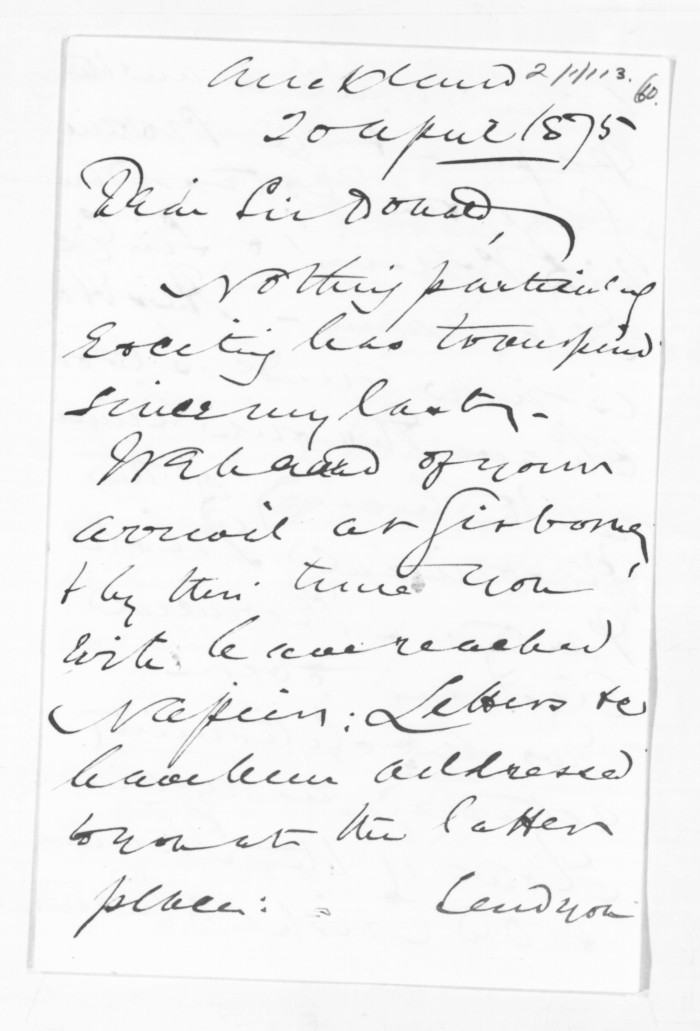 Auckland 2/1/113. 60.
20 April 1875
Dear Sir Donald,
Nothing particularly
Exciting has transpired
since my last -
We heard of your
arrival at Gisborne,
& by this time you
will have reached
Napier: Letters &c
have been addressed
to you at the latter
place: